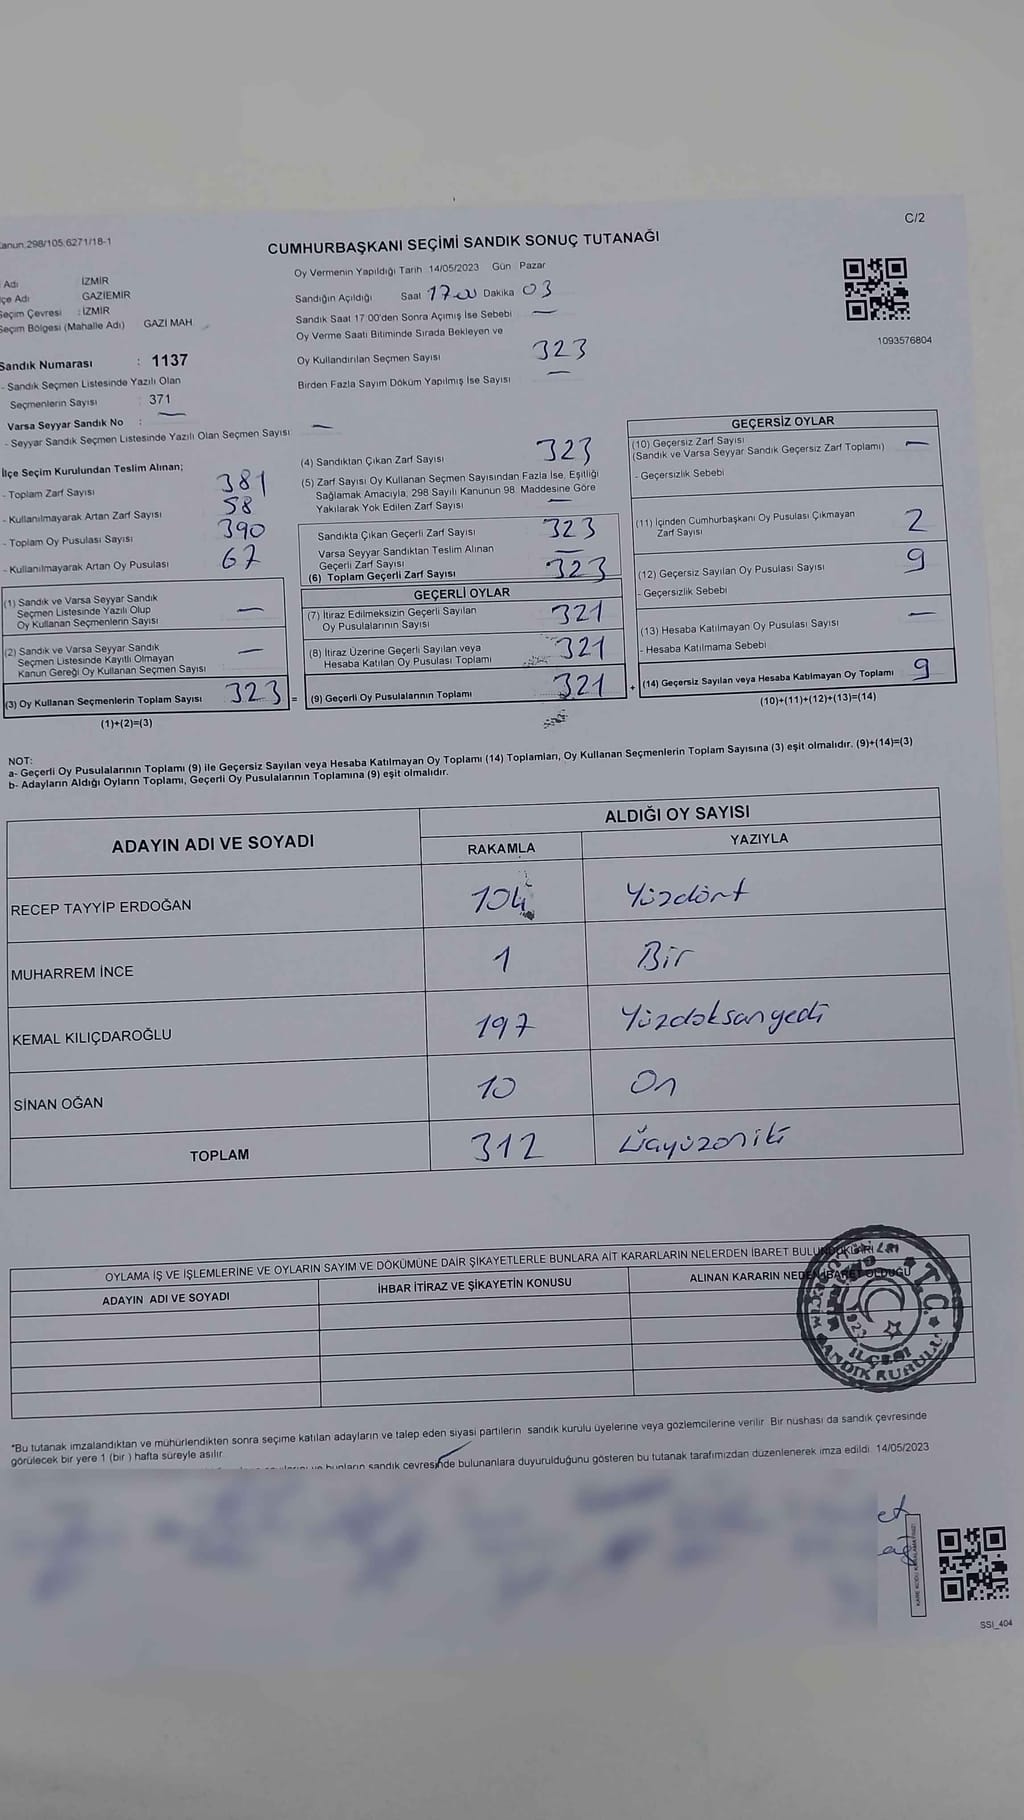 Kanun.298/105;6271/18-1
C/2
CUMHURBAŞKANI SEÇİMİ SANDIK SONUÇ TUTANAĞI
Adı : İZMİR
İlçe Adı : GAZİEMİR
Seçim Çevresi : İZMİR
Seçim Bölgesi (Mahalle Adı) GAZİ MAH
Sandık Numarası : 1137
- Sandık Seçmen Listesinde Yazılı Olan
Seçmenlerin Sayısı 371
Varsa Seyyar Sandık No : —
- Seyyar Sandık Seçmen Listesinde Yazılı Olan Seçmen Sayısı —
Oy Vermenin Yapıldığı Tarih 14/05/2023 Gün Pazar
Sandığın Açıldığı Saat 17.00 Dakika 03
Sandık Saat 17:00'den Sonra Açımış İse Sebebi —
Oy Verme Saati Bitiminde Sırada Bekleyen ve
Oy Kullandırılan Seçmen Sayısı 323
Birden Fazla Sayım Döküm Yapılmış İse Sayısı —
1093576804
İlçe Seçim Kurulundan Teslim Alınan;
- Toplam Zarf Sayısı 381
- Kullanılmayarak Artan Zarf Sayısı 58
- Toplam Oy Pusulası Sayısı 390
- Kullanılmayarak Artan Oy Pusulası 67
(1) Sandık ve Varsa Seyyar Sandık
Seçmen Listesinde Yazılı Olup
Oy Kullanan Seçmenlerin Sayısı —
(2) Sandık ve Varsa Seyyar Sandık
Seçmen Listesinde Kayıtlı Olmayan
Kanun Gereği Oy Kullanan Seçmen Sayısı —
(3) Oy Kullanan Seçmenlerin Toplam Sayısı 323 =
(1)+(2)=(3)
(4) Sandıktan Çıkan Zarf Sayısı 323
(5) Zarf Sayısı Oy Kullanan Seçmen Sayısından Fazla İse, Eşitliği
Sağlamak Amacıyla, 298 Sayılı Kanunun 98. Maddesine Göre
Yakılarak Yok Edilen Zarf Sayısı —
Sandıkta Çıkan Geçerli Zarf Sayısı 323
Varsa Seyyar Sandıktan Teslim Alınan
Geçerli Zarf Sayısı —
(6) Toplam Geçerli Zarf Sayısı 323
GEÇERLİ OYLAR
(7) İtiraz Edilmeksizin Geçerli Sayılan
Oy Pusulalarının Sayısı 321
(8) İtiraz Üzerine Geçerli Sayılan veya
Hesaba Katılan Oy Pusulası Toplamı 321
(9) Geçerli Oy Pusulalarının Toplamı 321 +
GEÇERSİZ OYLAR
(10) Geçersiz Zarf Sayısı
(Sandık ve Varsa Seyyar Sandık Geçersiz Zarf Toplamı) —
- Geçersizlik Sebebi
(11) İçinden Cumhurbaşkanı Oy Pusulası Çıkmayan
Zarf Sayısı 2
(12) Geçersiz Sayılan Oy Pusulası Sayısı 9
- Geçersizlik Sebebi
(13) Hesaba Katılmayan Oy Pusulası Sayısı —
- Hesaba Katılmama Sebebi
(14) Geçersiz Sayılan veya Hesaba Katılmayan Oy Toplamı 9
(10)+(11)+(12)+(13)=(14)
NOT:
a- Geçerli Oy Pusulalarının Toplamı (9) ile Geçersiz Sayılan veya Hesaba Katılmayan Oy Toplamı (14) Toplamları, Oy Kullanan Seçmenlerin Toplam Sayısına (3) eşit olmalıdır. (9)+(14)=(3)
b- Adayların Aldığı Oyların Toplamı, Geçerli Oy Pusulalarının Toplamına (9) eşit olmalıdır.
ADAYIN ADI VE SOYADI
ALDIĞI OY SAYISI
RAKAMLA YAZIYLA
RECEP TAYYİP ERDOĞAN 104 Yüzdört
MUHARREM İNCE 1 Bir
KEMAL KILIÇDAROĞLU 197 Yüzdoksanyedi
SİNAN OĞAN 10 On
TOPLAM 312 Üçyüzoniki
OYLAMA İŞ VE İŞLEMLERİNE VE OYLARIN SAYIM VE DÖKÜMÜNE DAİR ŞİKAYETLERLE BUNLARA AİT KARARLARIN NELERDEN İBARET BULUNDUKLARI
ADAYIN ADI VE SOYADI
İHBAR İTİRAZ VE ŞİKAYETİN KONUSU
ALINAN KARARIN NEDEN İBARET OLDUĞU
T.C.
1923
İLÇESİ
SANDIK KURULU
*Bu tutanak imzalandıktan ve mühürlendikten sonra seçime katılan adayların ve talep eden siyasi partilerin sandık kurulu üyelerine veya gözlemcilerine verilir. Bir nüshası da sandık çevresinde
görülecek bir yere 1 (bir ) hafta süreyle asılır.
bunların sandık çevresinde bulunanlara duyurulduğunu gösteren bu tutanak tarafımızdan düzenlenerek imza edildi. 14/05/2023
et
SSI_404